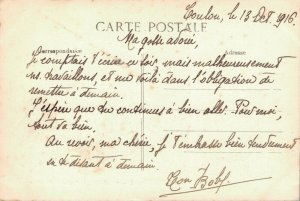 Toulon, le 13 Oct. 1916.
CARTE POSTALE
Ma gosse adorée,
Correspondance
Adresse
Je comptais t'écrire ce soir, mais malheureusement
ns. travaillons, et me voilà dans l'obligation de
remettre à demain.
J'espère que tu continues à bien aller. Pour moi,
tout va bien.
Au revoir, ma chérie, je t'embrasse bien tendrement
en te disant à demain.
Ton Bob